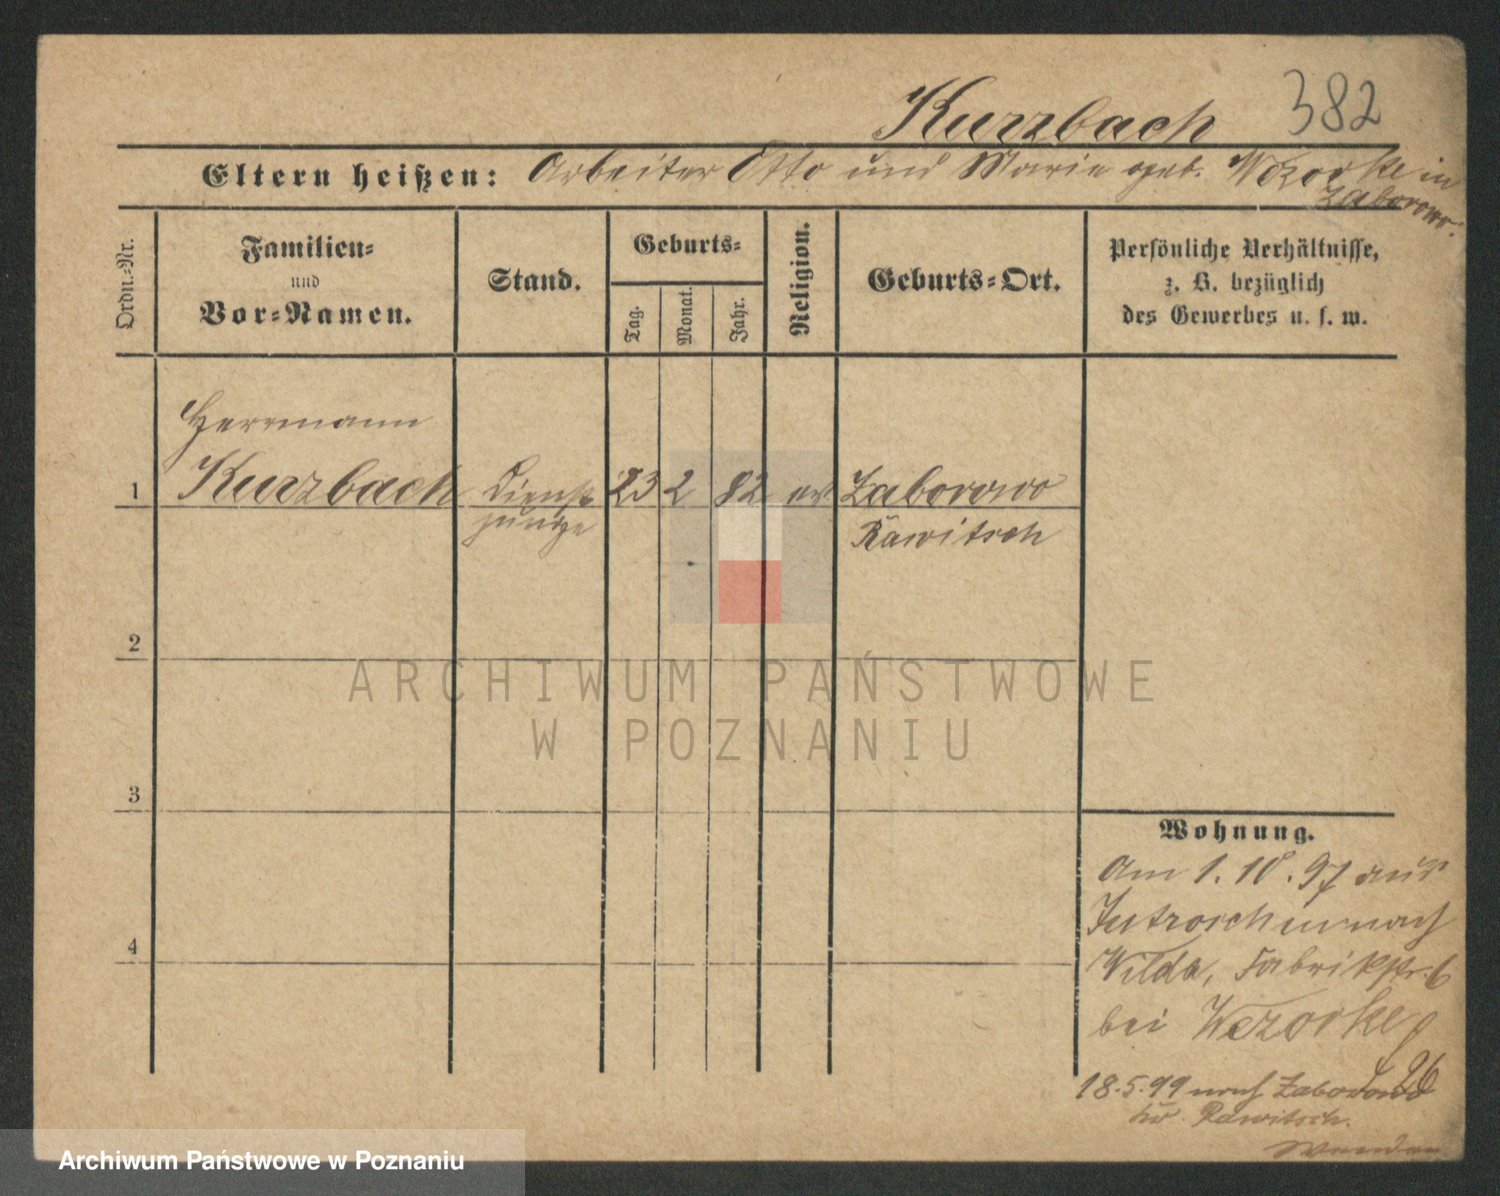 Kurzbach 382
Eltern heißen: Arbeiter Otto und Marie geb. Wezorke in
Zaborowo.
Ordn.-Nr.
Familien-
und
Vor-Namen.
Stand.
Geburts-
Tag.
Monat.
Jahr.
Religion.
Geburts-Ort.
Persönliche Verhältnisse,
z. B. bezüglich
des Gewerbes u. s. w.
Herrmann
1 Kurzbach Dienst 23 2 82 ev Zaborowo
junge Rawitsch
2
ARCHIWUM PAŃSTWOWE
W POZNANIU
3
Wohnung.
Am 1.10.97 aus
Jutroschin nach
4
Wilda, Fabrikstr. 6
bei Wezorke
18.5.99 nach Zaborowo
Kr. Rawitsch.
Archiwum Państwowe w Poznaniu